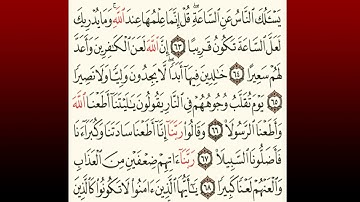 يَسْـَٔلُكَ ٱلنَّاسُ عَنِ ٱلسَّاعَةِ ۖ قُلْ إِنَّمَا عِلْمُهَا عِندَ ٱللَّهِ ۚ وَمَا يُدْرِيكَ
لَعَلَّ ٱلسَّاعَةَ تَكُونُ قَرِيبًا ٦٣ إِنَّ ٱللَّهَ لَعَنَ ٱلْكَٰفِرِينَ وَأَعَدَّ
لَهُمْ سَعِيرًا ٦٤ خَٰلِدِينَ فِيهَآ أَبَدًا ۖ لَّا يَجِدُونَ وَلِيًّا وَلَا نَصِيرًا
٦٥ يَوْمَ تُقَلَّبُ وُجُوهُهُمْ فِى ٱلنَّارِ يَقُولُونَ يَٰلَيْتَنَآ أَطَعْنَا ٱللَّهَ
وَأَطَعْنَا ٱلرَّسُولَا۠ ٦٦ وَقَالُوا۟ رَبَّنَآ إِنَّآ أَطَعْنَا سَادَتَنَا وَكُبَرَآءَنَا
فَأَضَلُّونَا ٱلسَّبِيلَا۠ ٦٧ رَبَّنَآ ءَاتِهِمْ ضِعْفَيْنِ مِنَ ٱلْعَذَابِ
وَٱلْعَنْهُمْ لَعْنًا كَبِيرًا ٦٨ يَٰٓأَيُّهَا ٱلَّذِينَ ءَامَنُوا۟ لَا تَكُونُوا۟ كَٱلَّذِينَ